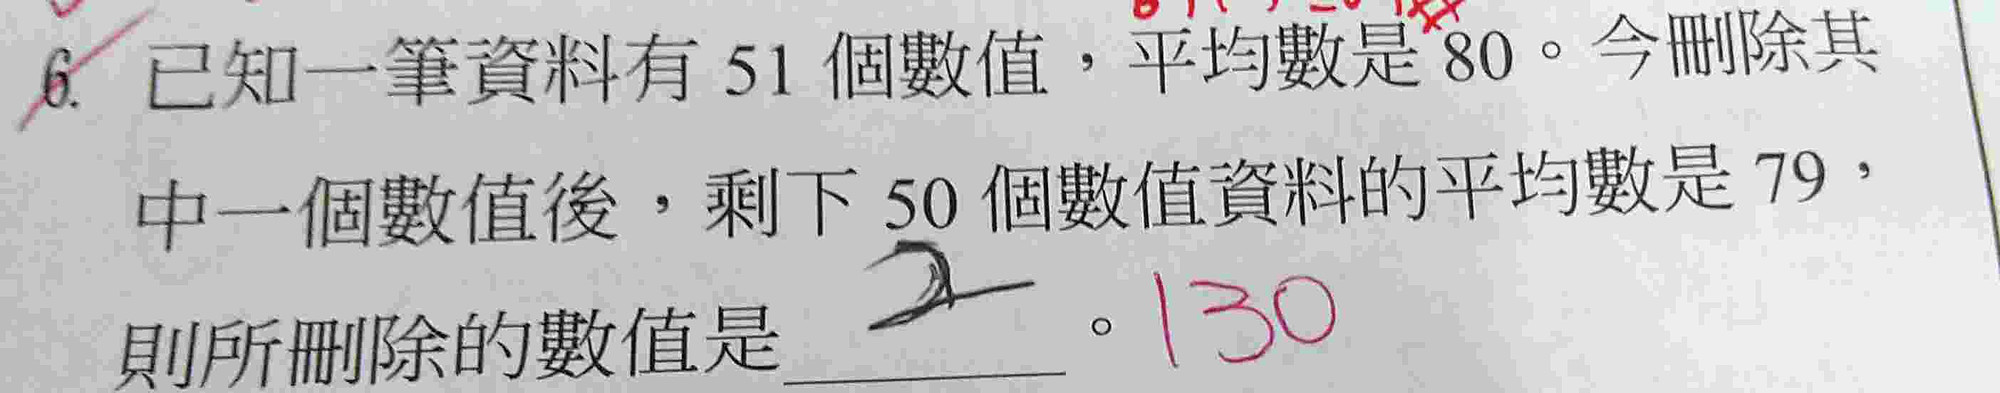 6. 已知一筆資料有 51 個數值，平均數是 80。今刪除其
中一個數值後，剩下 50 個數值資料的平均數是 79，
則所刪除的數值是 2 。130